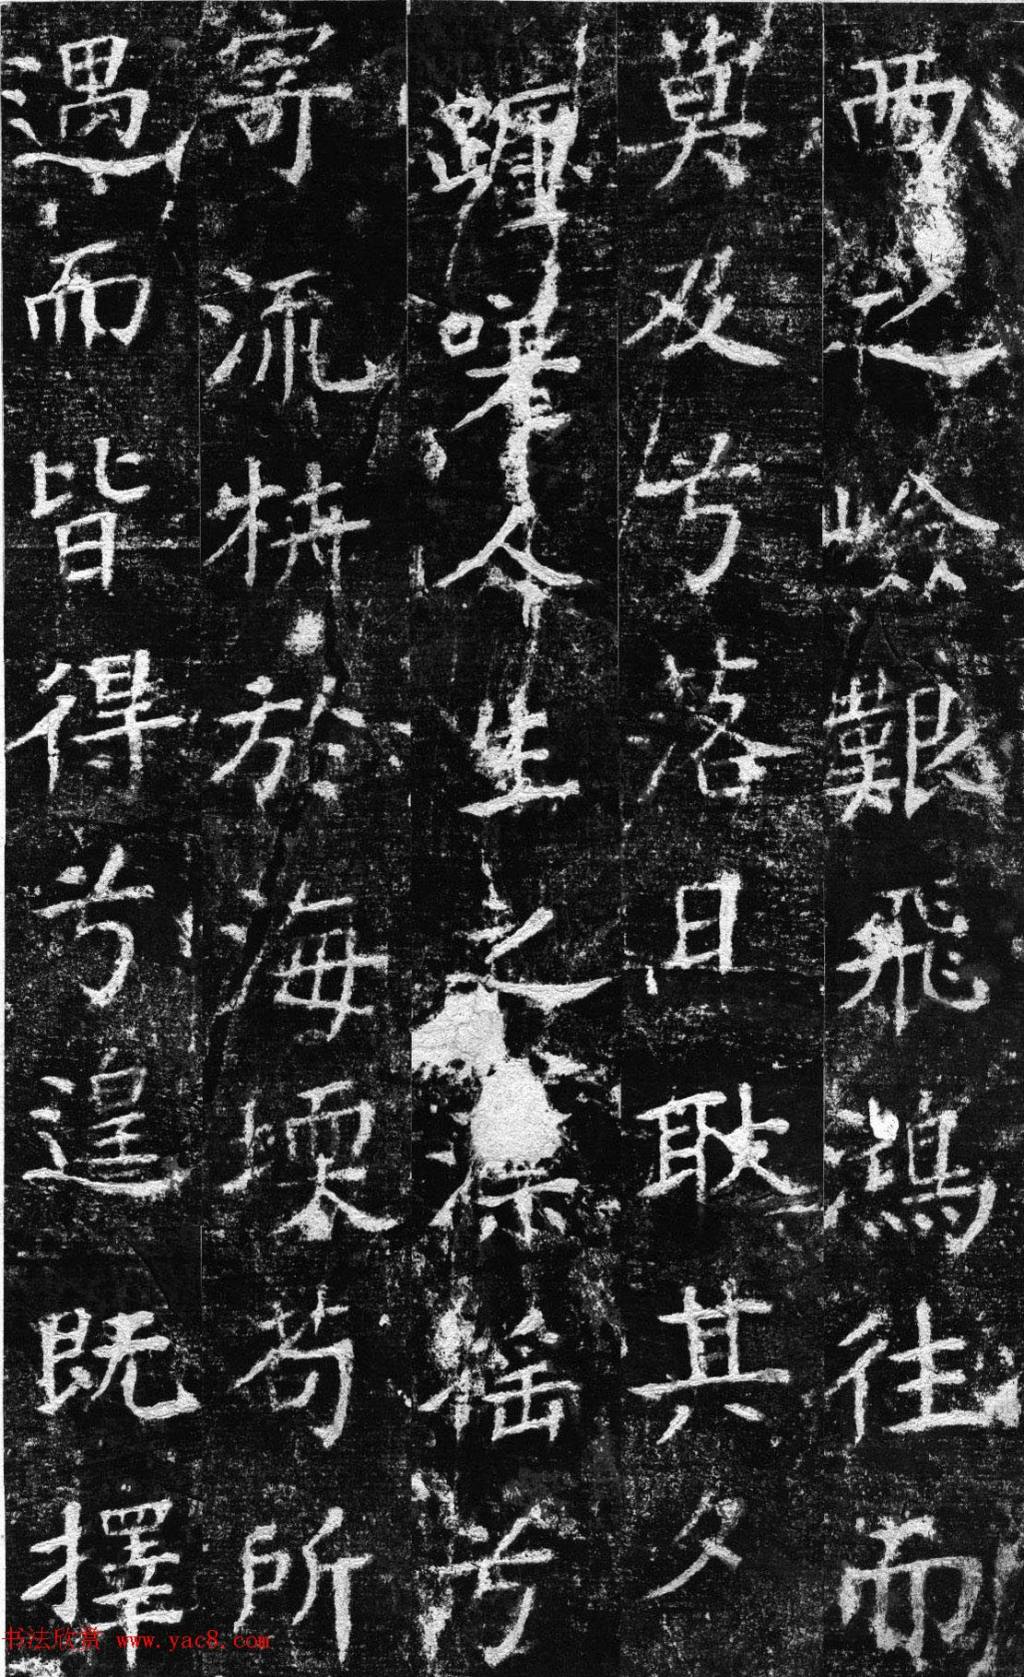 西之嶮艱飛鴻往而
莫及兮落日耿其夕
躔嗟人生之漂搖兮
寄流枿於海壖苟所
遇而皆得兮遑既擇
书法欣赏 www.yac8.com